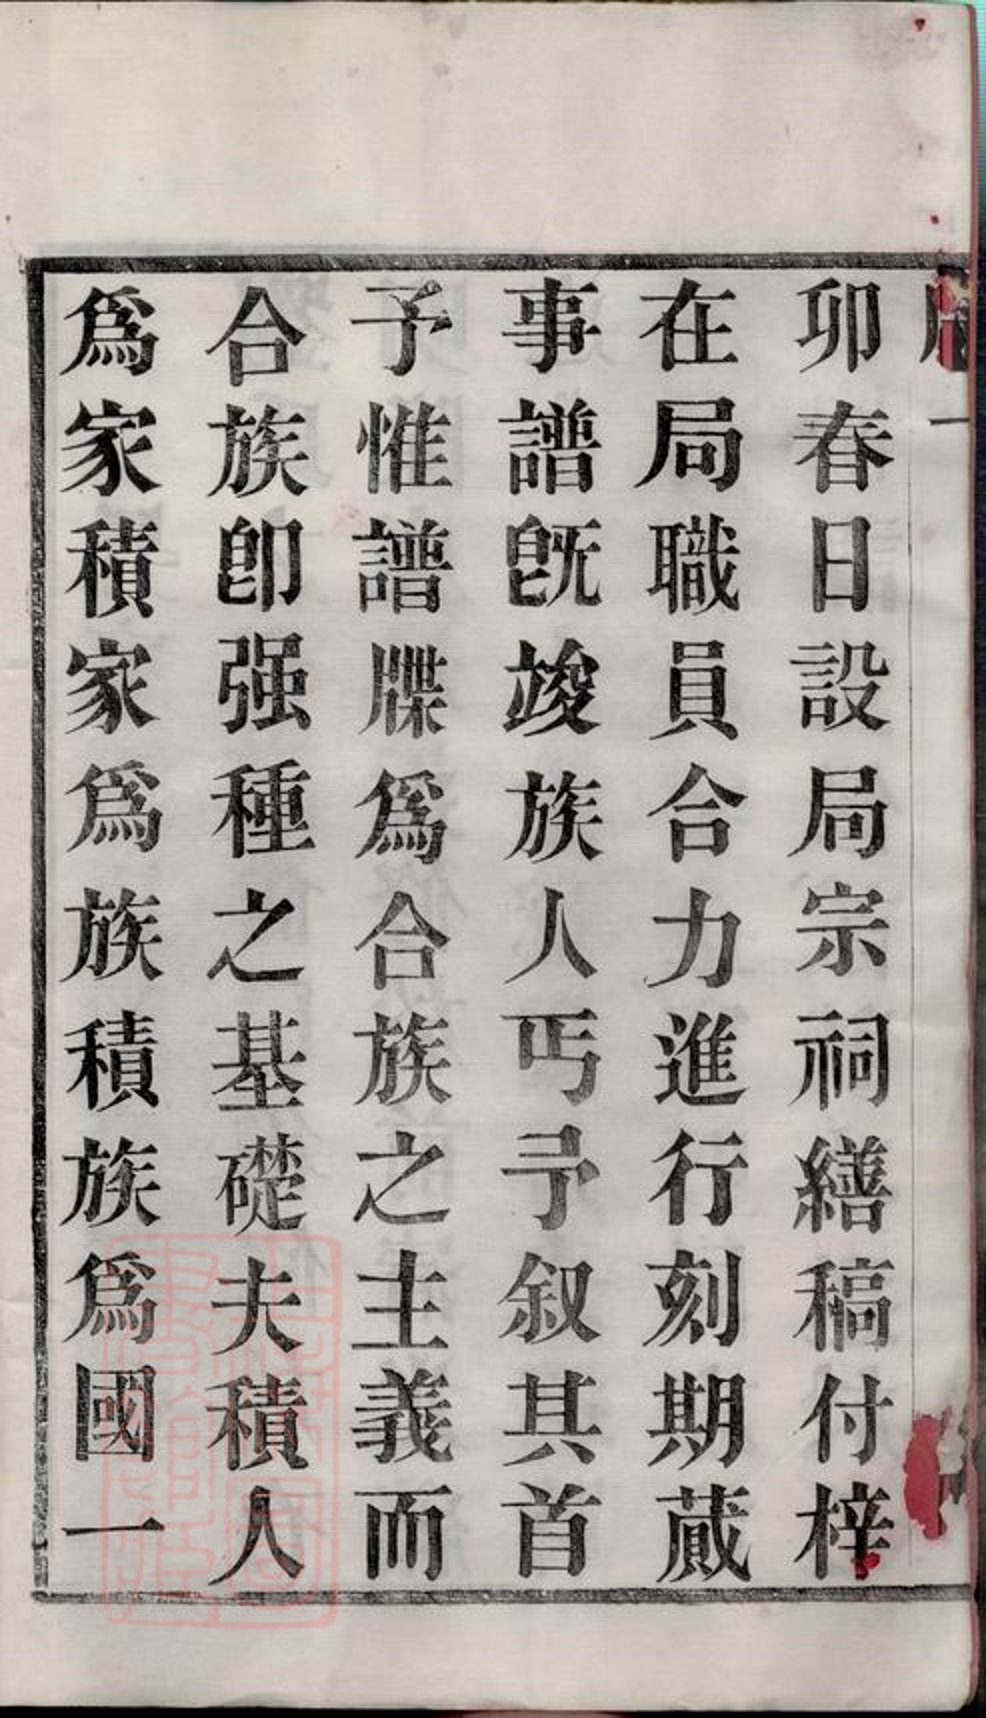 卯春日設局宗祠繕稿付梓
在局職員合力進行刻期蕆
事譜旣竣族人丐予叙其首
予惟譜牒爲合族之主義而
合族卽强種之基礎夫積人
爲家積家爲族積族爲國一